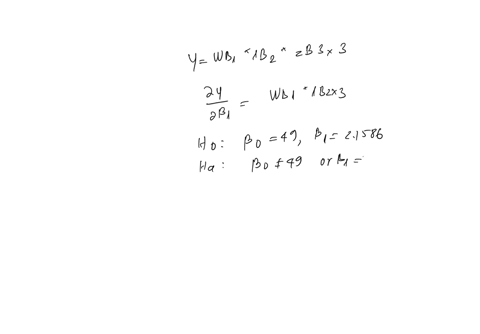 Y = WB1 " 1B2 " 2B3 x 3
∂Y/∂β1 = WB1 " 1B2x3
Ho: β0 = 49, β1 = 2.1586
Ha: β0 ≠ 49 or β1 =